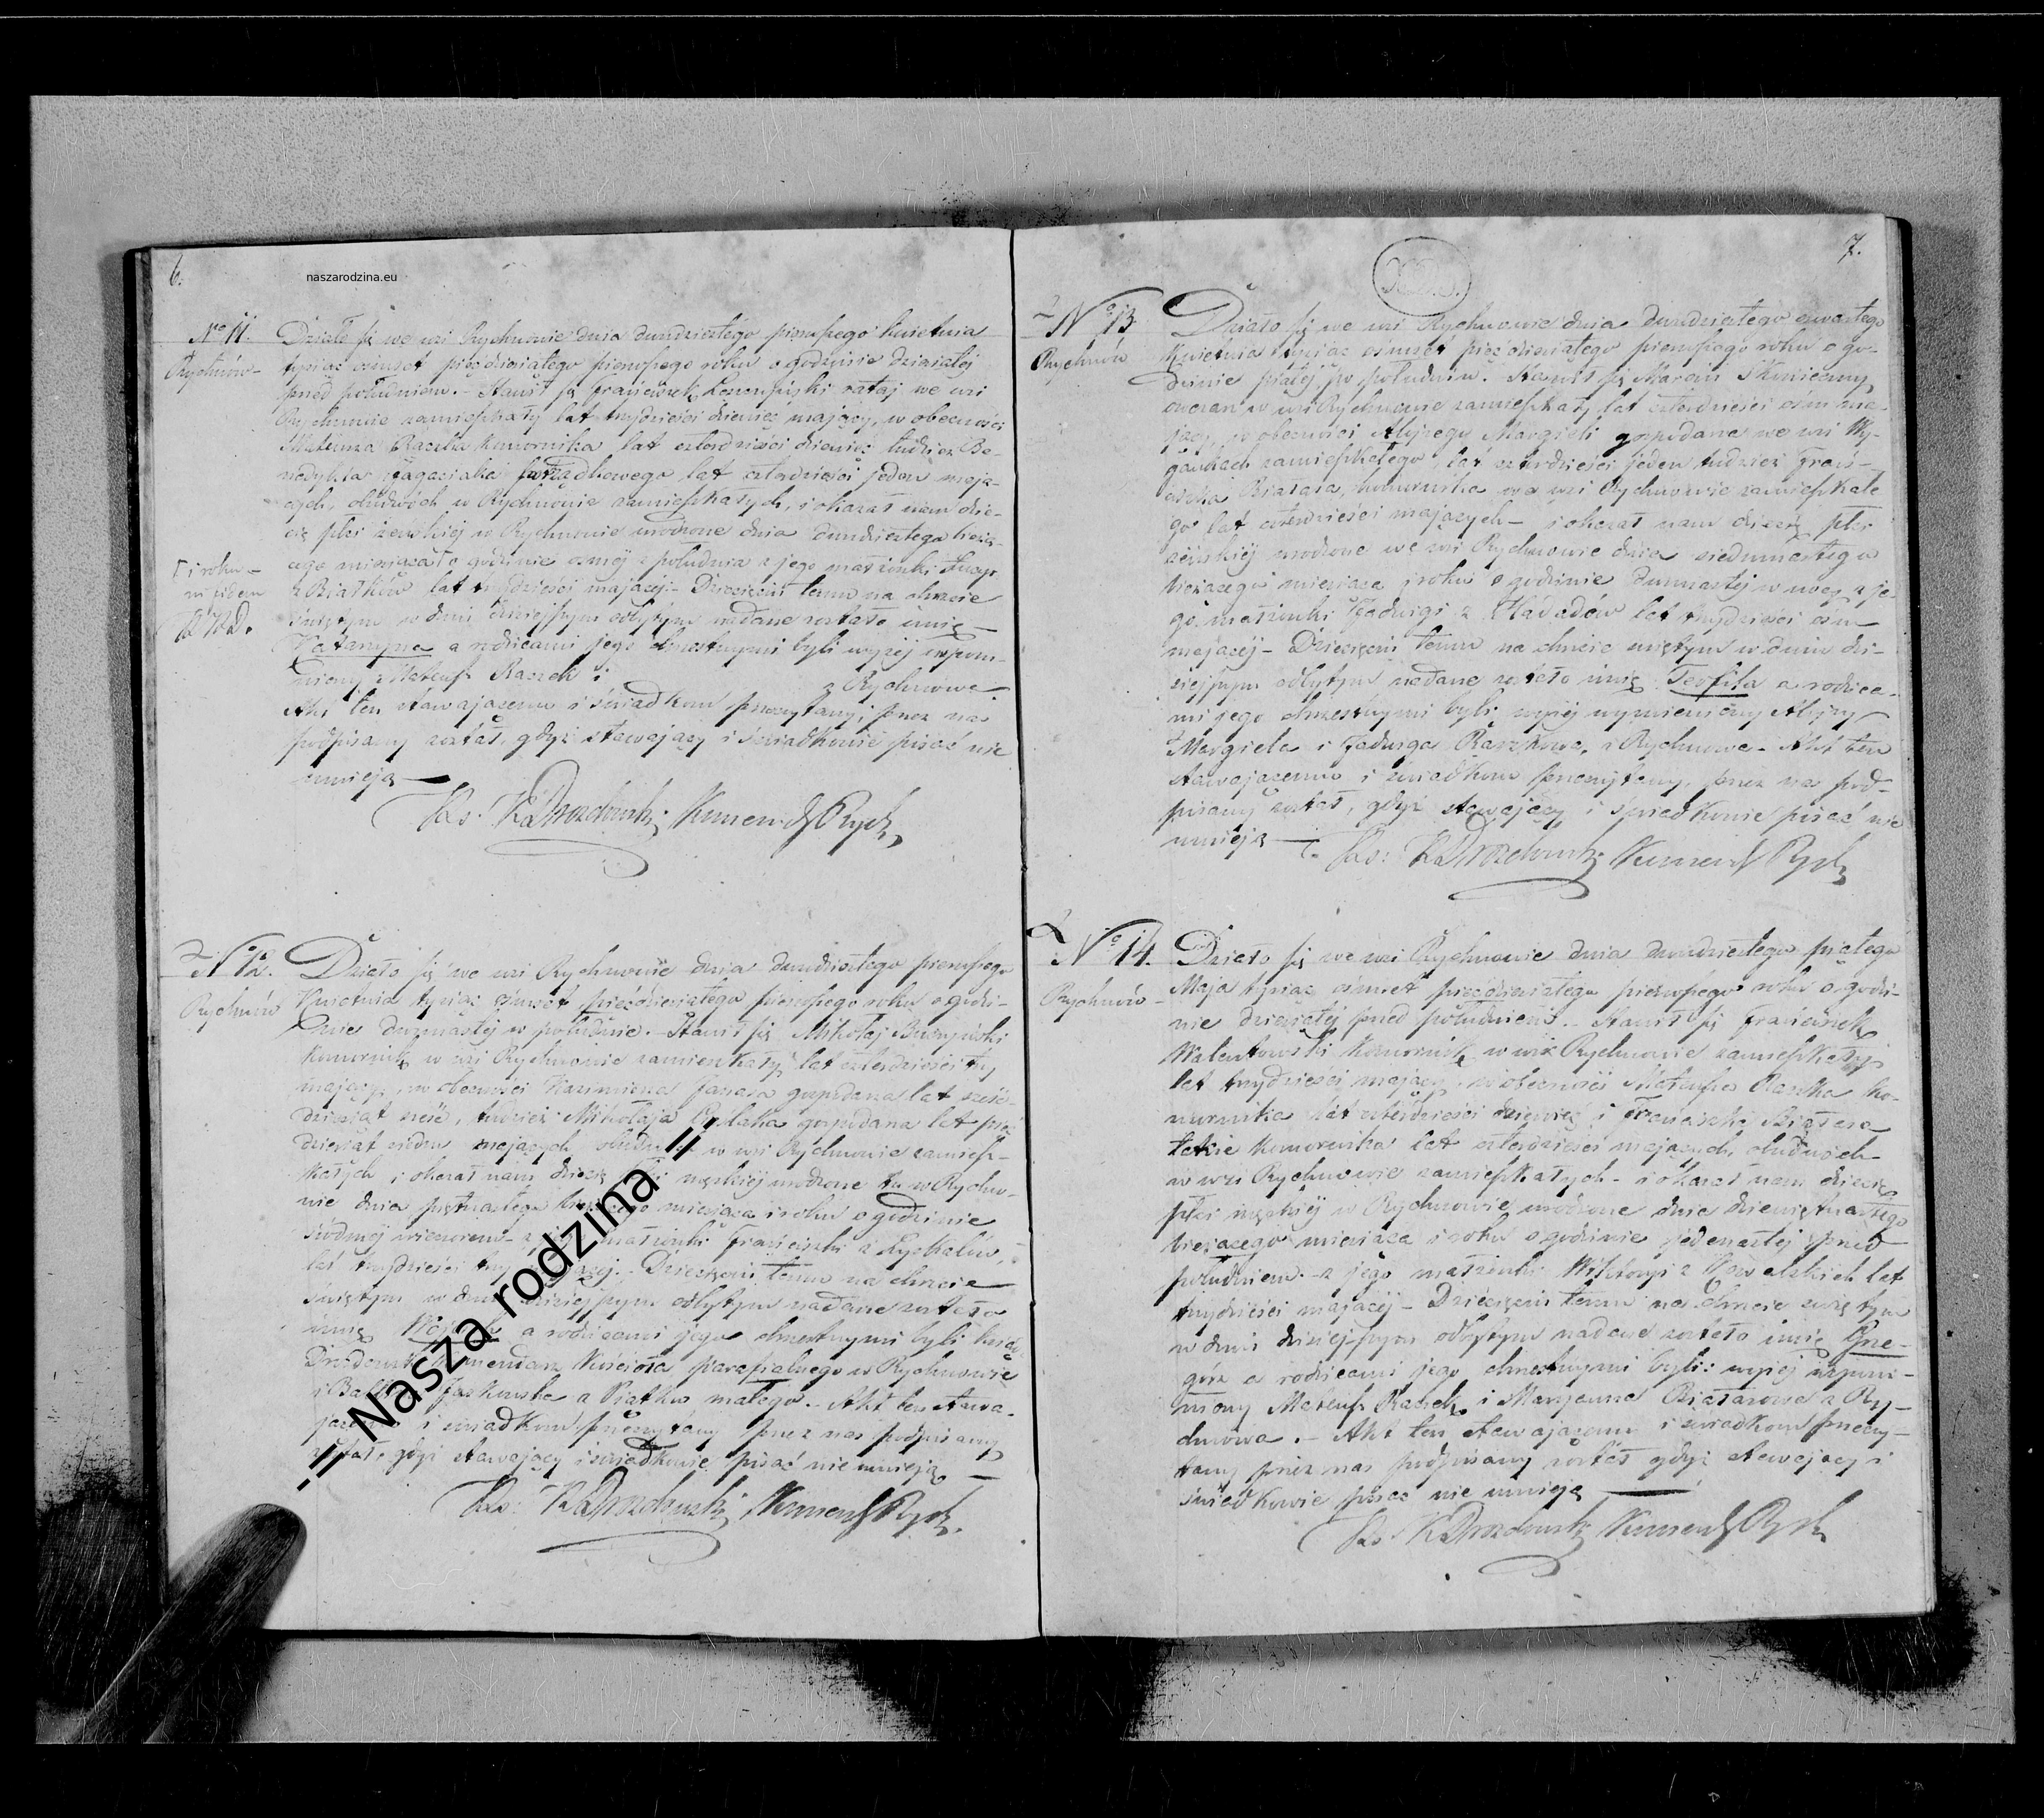 6.
naszarodzina.eu
No 11.
Rychnów-
Działo się we wsi Rychnowie dnia dwudziestego pierwszego kwietnia
tysiąc ośmset pięćdziesiątego pierwszego roku o godzinie dziesiątej
przed południem. - Stawił się Franciszek rataj we wsi
Rychnowie zamieszkały lat trzydzieści dziewięć mający, w obecności
Mateusza Raszka komornika lat czterdzieści dziewięć tudzież Be-
nedykta lat czterdzieści jeden mają-
cych, obudwóch w Rychnowie zamieszkałych, i okazał nam dzie-
cię płci żeńskiej w Rychnowie urodzone dnia dwudziestego bieżą-
cego miesiąca o godzinie osmej z południa z jego małżonki Łucyi
z Białków lat trzydzieści mającej.- Dziecięciu temu na chrzcie
świętym w dniu dzisiejszym odbytym nadane zostało imię -
Katarzyna a rodzicami jego chrzestnymi byli wyżej wspom-
niony Mateusz Raszek i z Rychnowa -
Akt ten stawającemu i świadkom przeczytany, przez nas
podpisany został, gdyż stawający i świadkowie pisać nie
umieją -
i roku -
Xs: K. Drozdowski Kumend Rych.
No 12.
Rychnów
Działo się we wsi Rychnowie dnia dwudziestego pierwszego
Kwietnia tysiąc ośmset pięćdziesiątego pierwszego roku o godzi-
nie dwunastej w południe. - Stawił się Mikołaj
Komornik w wsi Rychnowie zamieszkały lat czterdzieści trzy
mający, w obecności Kazimierza Janasa gospodarza lat sześć-
dziesiąt sześć, tudzież Mikołaja gospodarza lat pięć
dziesiąt siedm mających w wsi Rychnowie zamiesz-
kałych i okazał nam dziecię męzkiej urodzone tu w Rychno-
wie dnia piętnastego miesiąca i roku o godzinie
siódmej wieczorem - z małżonki Franciszki z
lat trzydzieści trzy - Dziecięciu temu na chrzcie
świętym w dniu dzisiejszym odbytym nadane zostało
imię a rodzicami jego chrzestnymi byli
Kościoła parafialnego w Rychnowie
i Jaskowska z Piątku małego. - Akt ten stawa-
i świadkom przeczytany przez nas podpisany
gdyż stawający i świadkowie pisać nie umieją -
Xs: K. Drozdowski Kumend Rych.
-= Nasza rodzina =-
7.
No 13
Rychnów
Działo się we wsi Rychnowie dnia dwudziestego czwartego
Kwietnia tysiąc ośmset pięćdziesiątego pierwszego roku o go-
dzinie piątej po południu. Stawił się Marcin Skonieczny
owczarz w wsi Rychnowie zamieszkały lat czterdzieści ośm ma-
jący, w obecności Alojzego Margieli gospodarza we wsi Wy-
gankach zamieszkałego, lat czterdzieści jeden tudzież Fran-
ciszka Białasa, komornika we wsi Rychnowie zamieszkałe
go lat czterdzieści mających - i okazał nam dziecię płci
żeńskiej urodzone we wsi Rychnowie dnia siedmnastego
bieżącego miesiąca i roku o godzinie dwunastej w nocy z je-
go małżonki Jadwigi z lat trzydzieści ośm
mającej - Dziecięciu temu na chrzcie świętym w dniu dzi-
siejszym odbytym nadane zostało imię Teofila a rodzica-
mi jego chrzestnymi byli wyżej wymieniony Alojzy
Margiela i Jadwiga Raszkowa, z Rychnowa - Akt ten
stawającemu i świadkom przeczytany, przez nas pod-
pisany został, gdyż stawający i świadkowie pisać nie
umieją -
Xs: K. Drozdowski Kumend Rych
No 14.
Rychnów -
Działo się we wsi Rychnowie dnia dwudziestego piątego
Maja tysiąc ośmset pięćdziesiątego pierwszego roku o godzi-
nie dziesiątej przed południem. - Stawił się Franciszek
Walentowski Komornik w wsi Rychnowie zamieszkały
lat trzydzieści mający, w obecności Mateusza Raszka ko-
mornika lat czterdzieści dziewięć i Franciszka Białasa
także komornika lat czterdzieści mających, obudwóch
w wsi Rychnowie zamieszkałych - i okazał nam dziecię
płci męzkiej w Rychnowie urodzone dnia dziewiętnastego
bieżącego miesiąca i roku o godzinie jedenastej przed
południem. - z jego małżonki Wiktoryi z Kowalskich lat
trzydzieści mającej - Dziecięciu temu na chrzcie świętym
w dniu dzisiejszym odbytym nadane zostało imię Grze-
górz a rodzicami jego chrzestnymi byli: wyżej wspom-
niony Mateusz Raszek i Maryanna Białasowa z Ry-
chnowa. - Akt ten stawającemu i świadkom przeczy-
tany przez nas podpisany został gdyż stawający i
świadkowie pisać nie umieją -
Xs: K. Drozdowski Kumend Rych